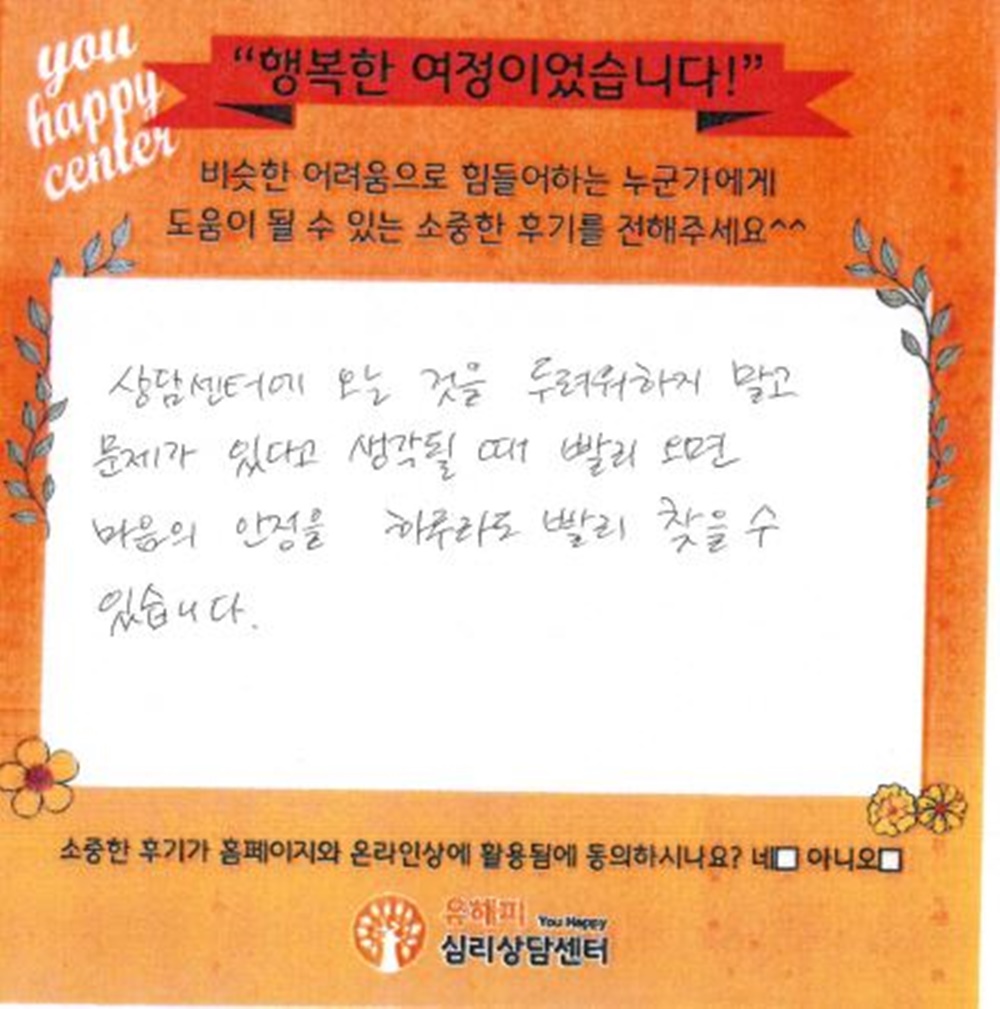 you
happy
center
“행복한 여정이었습니다!”
비슷한 어려움으로 힘들어하는 누군가에게
도움이 될 수 있는 소중한 후기를 전해주세요^^
상담센터에 오는 것을 두려워하지 말고
문제가 있다고 생각될 때 빨리 오면
마음의 안정을 하루라도 빨리 찾을 수
있습니다.
소중한 후기가 홈페이지와 온라인상에 활용됨에 동의하시나요? 네□ 아니오□
유해피 You Happy
심리상담센터